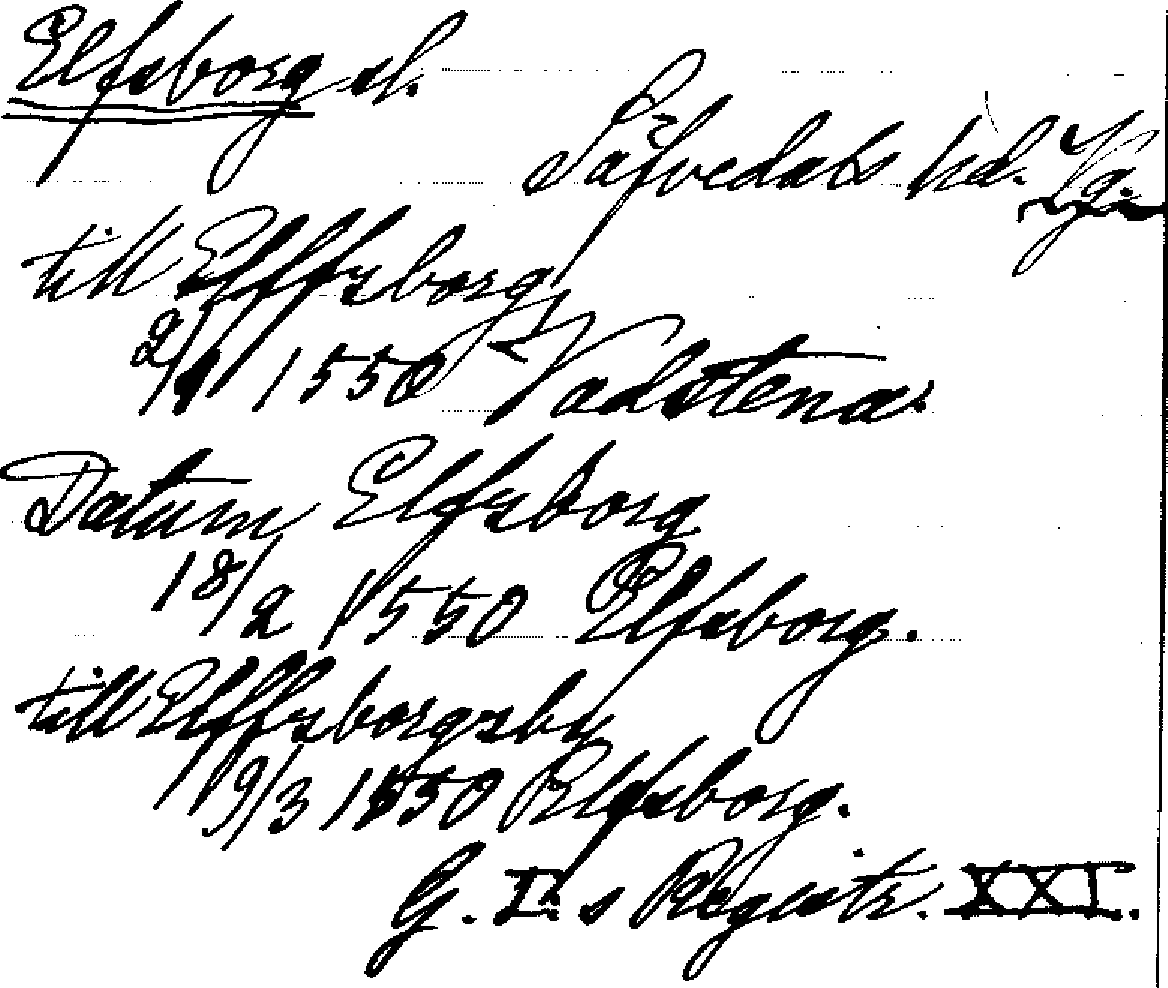 Elfsborg sl.
Säfvedals hd. Vg.
till Elffzborg
2/1 1550 Vadstena.
Datum Elfzborg
18/2 1550 Elfsborg.
till Elffzborgzby
19/3 1550 Elfsborg.
G. I:s Registr. XXI.